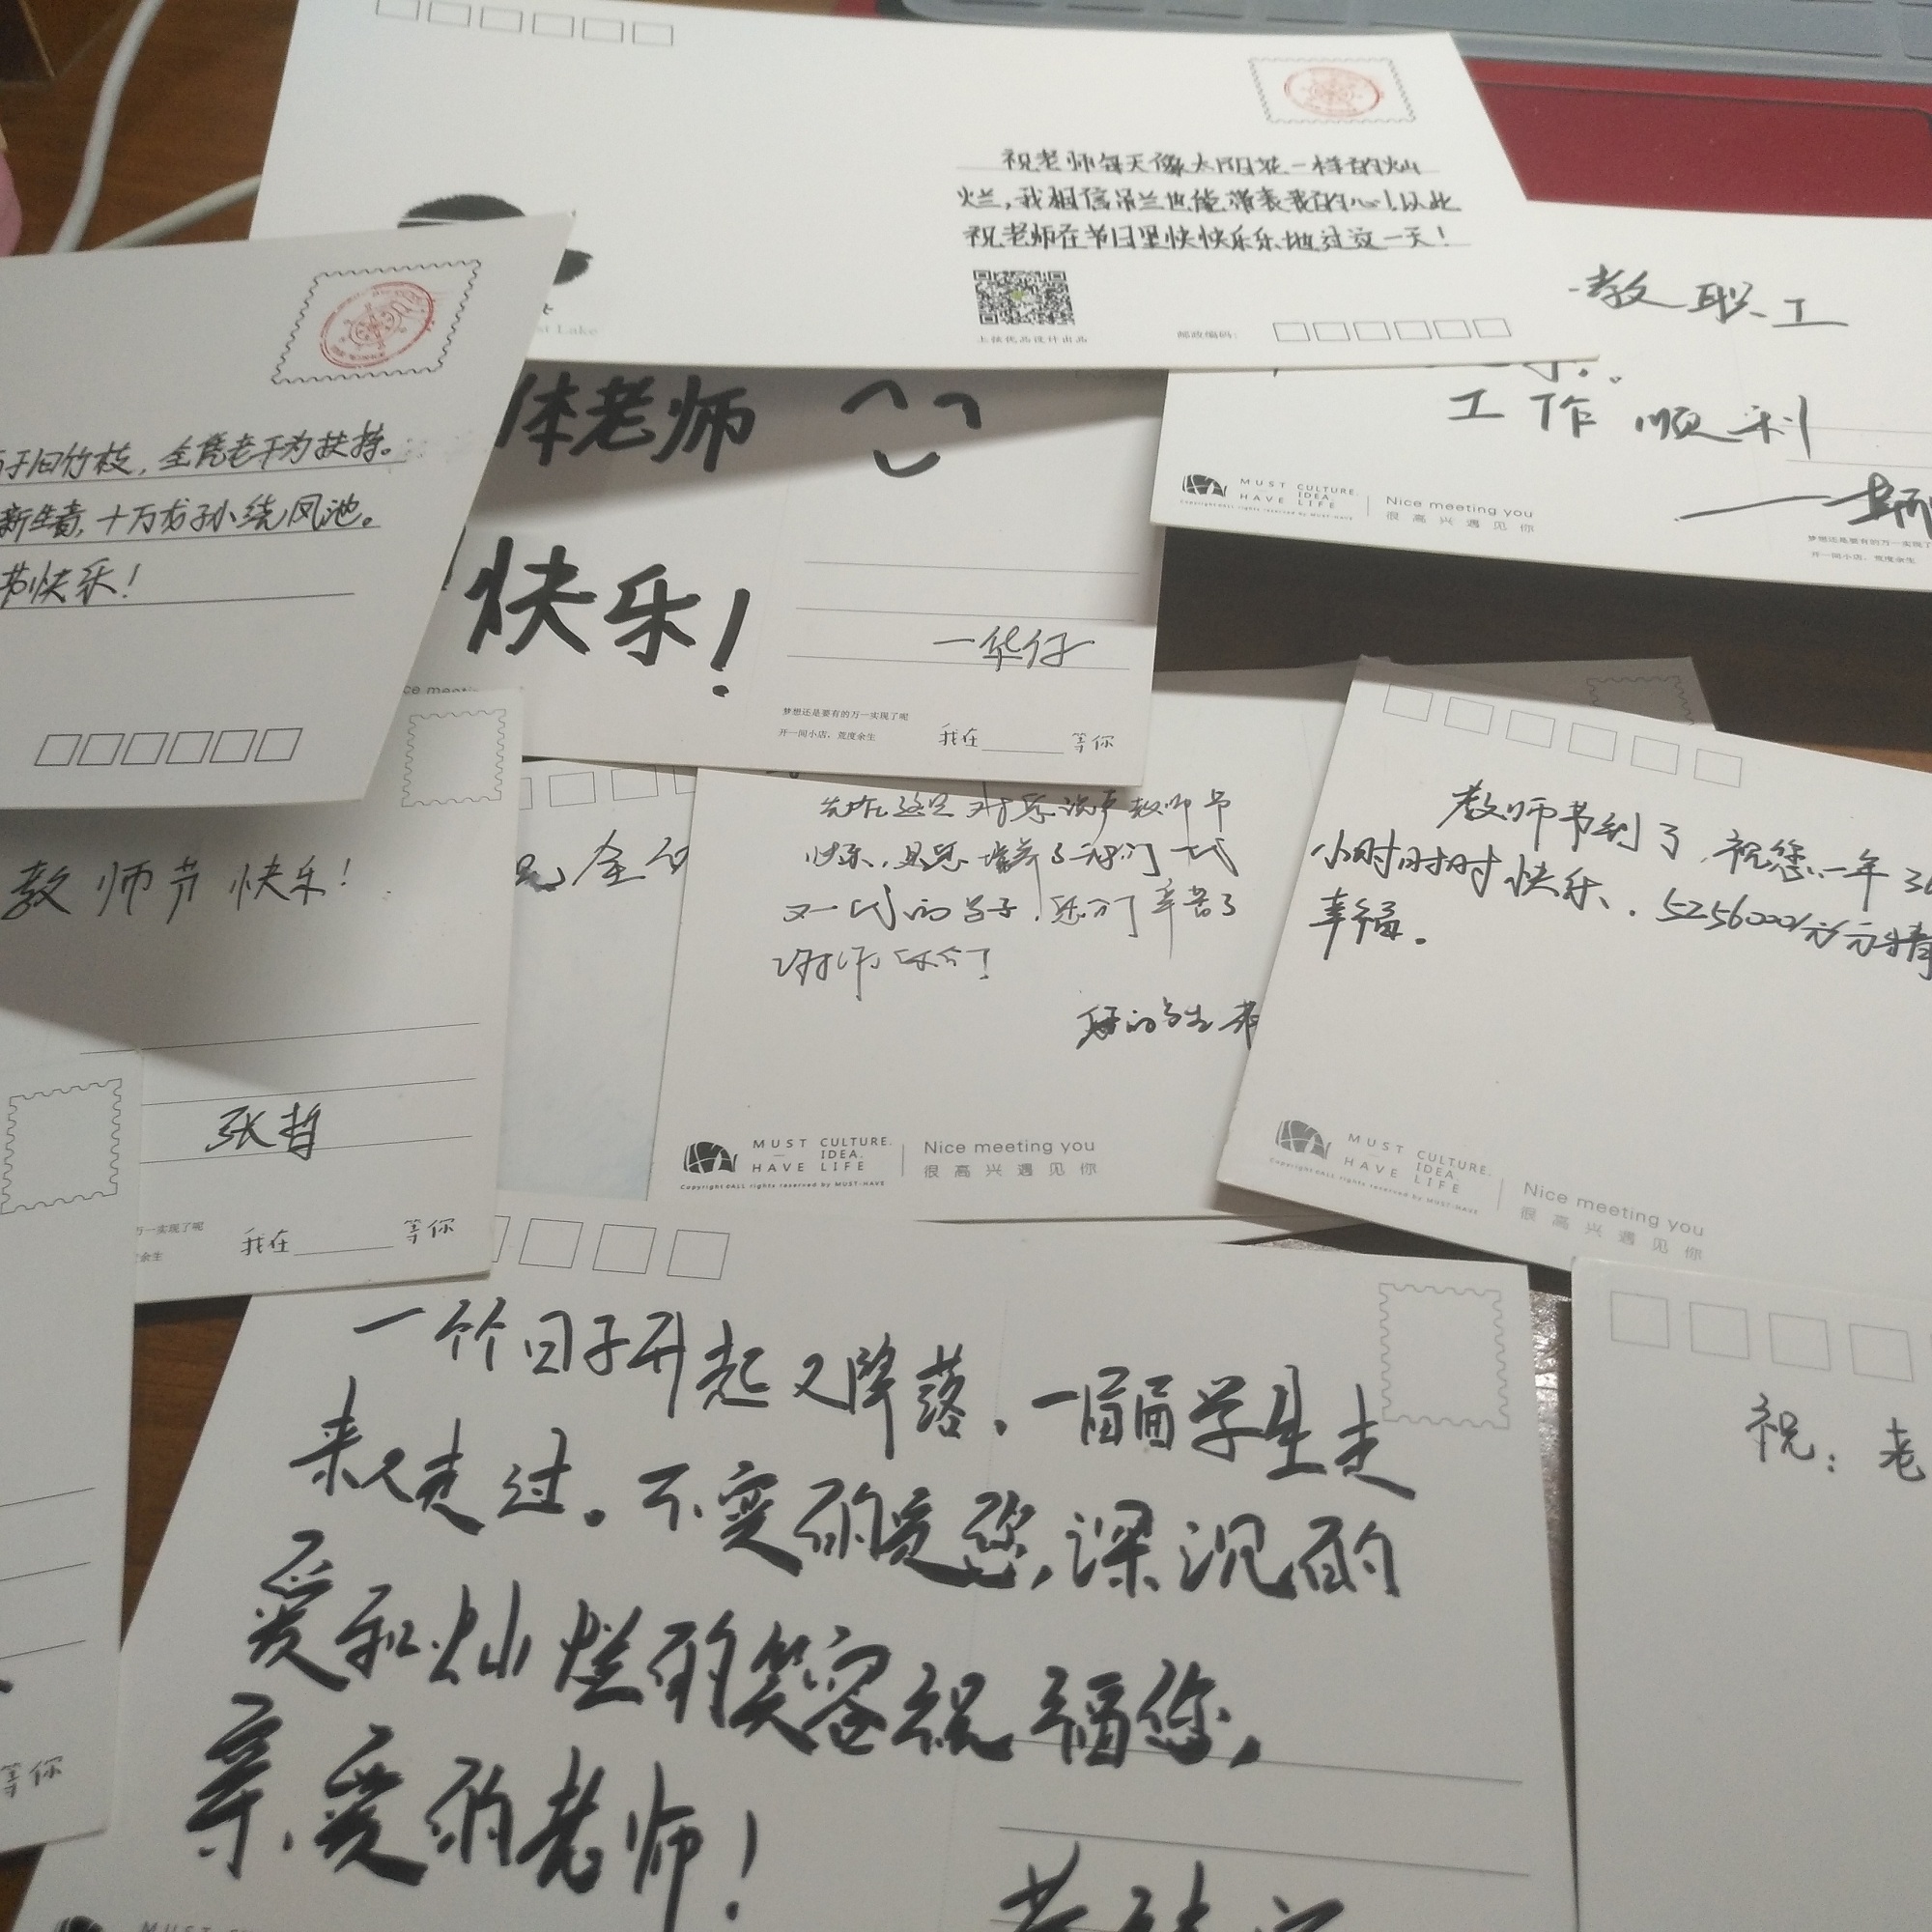 祝老师每天像太阳花一样的灿
烂，我相信吊兰也能带表我的心！以此
祝老师在节日里快快乐乐地过这一天！
上铁优品设计出品
邮政编码：
st Lake
教职工
工作顺利
MUST CULTURE.
IDEA.
HAVE LIFE
Copyright©ALL rights reserved by MUST-HAVE
Nice meeting you
很高兴遇见你
梦想还是要有的万一实现了
开一间小店，荒度余生
于旧竹枝，全凭老干为扶持。
新生者，十万龙孙绕凤池。
节快乐！
体老师
快乐！
一华仔
ce meeti
梦想还是要有的万一实现了呢
开一间小店，荒度余生
我在 等你
教师节快乐！
张哲
万一实现了呢
余生
我在 等你
全体
先在这里对您说声教师节
快乐，是您培养了我们一代
又一代的学子，您们辛苦了
谢师
的学生
MUST CULTURE.
IDEA.
HAVE LIFE
Copyright©ALL rights reserved by MUST-HAVE
Nice meeting you
很高兴遇见你
教师节到了，祝您一年36
小时时时快乐、5256000分分精
幸福。
MUST CULTURE.
IDEA.
HAVE LIFE
Copyright©ALL rights reserved by MUST-HAVE
Nice meeting you
很高兴遇见你
一个个日子升起又降落，一届届学生走
来又走过。不变的是您，深沉的
爱和灿烂的笑容祝福您，
亲爱的老师！
祝：老
等你